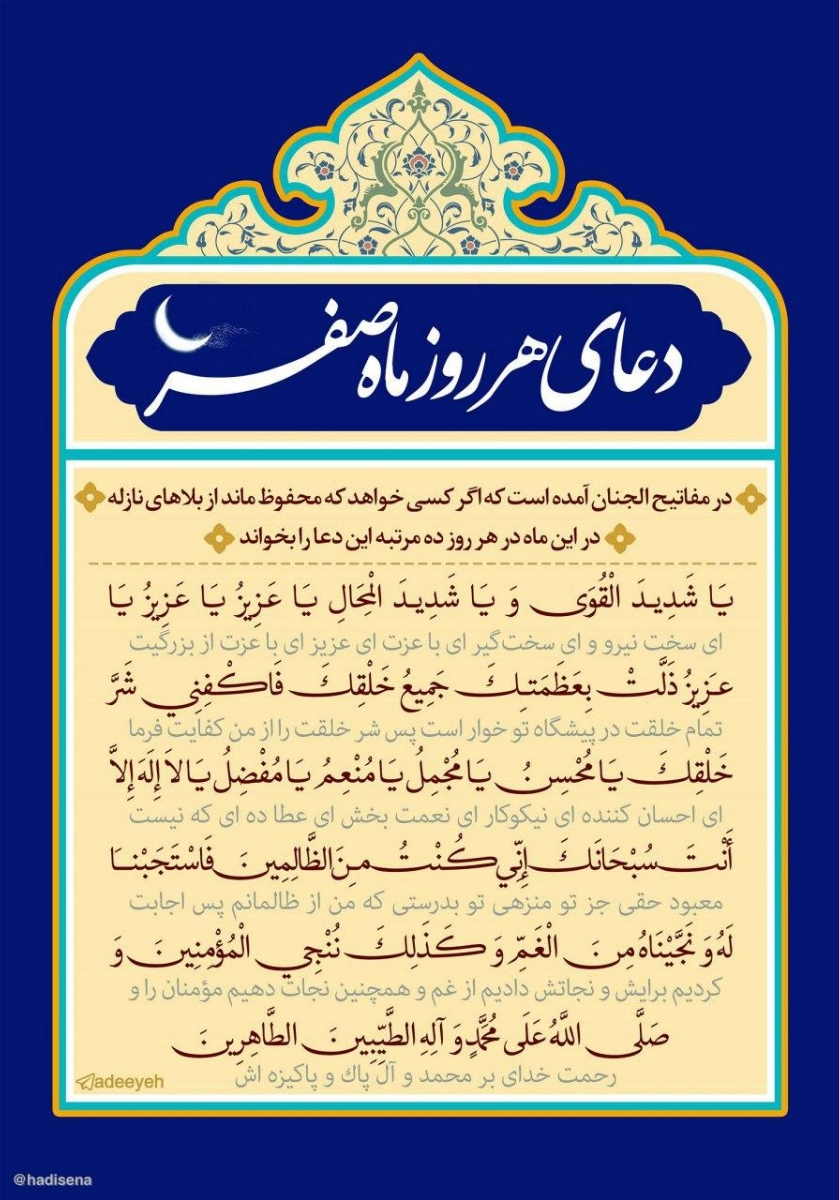 دعای هر روز ماه صفر
در مفاتیح الجنان آمده است که اگر کسی خواهد که محفوظ ماند از بلاهای نازله
در این ماه در هر روز ده مرتبه این دعا را بخواند
يَا شَدِيدَ الْقُوَى وَ يَا شَدِيدَ الْمِحَالِ يَا عَزِيزُ يَا عَزِيزُ يَا
ای سخت نیرو و ای سخت‌گیر ای با عزت ای عزیز ای با عزت از بزرگیت
عَزِيزُ ذَلَّتْ بِعَظَمَتِكَ جَمِيعُ خَلْقِكَ فَاكْفِنِي شَرَّ
تمام خلقت در پیشگاه تو خوار است پس شر خلقت را از من کفایت فرما
خَلْقِكَ يَا مُحْسِنُ يَا مُجْمِلُ يَا مُنْعِمُ يَا مُفْضِلُ يَا لاَ إِلَهَ إِلاَّ
ای احسان کننده ای نیکوکار ای نعمت بخش ای عطا ده ای که نیست
أَنْتَ سُبْحَانَكَ إِنِّي كُنْتُ مِنَ الظَّالِمِينَ فَاسْتَجَبْنَا
معبود حقی جز تو منزهی تو بدرستی که من از ظالمانم پس اجابت
لَهُ وَ نَجَّيْنَاهُ مِنَ الْغَمِّ وَ كَذَلِكَ نُنْجِي الْمُؤْمِنِينَ وَ
کردیم برایش و نجاتش دادیم از غم و همچنین نجات دهیم مؤمنان را و
صَلَّى اللَّهُ عَلَى مُحَمَّدٍ وَ آلِهِ الطَّيِّبِينَ الطَّاهِرِينَ
رحمت خدای بر محمد و آل پاك و پاکیزه اش
adeeyeh
@hadisena